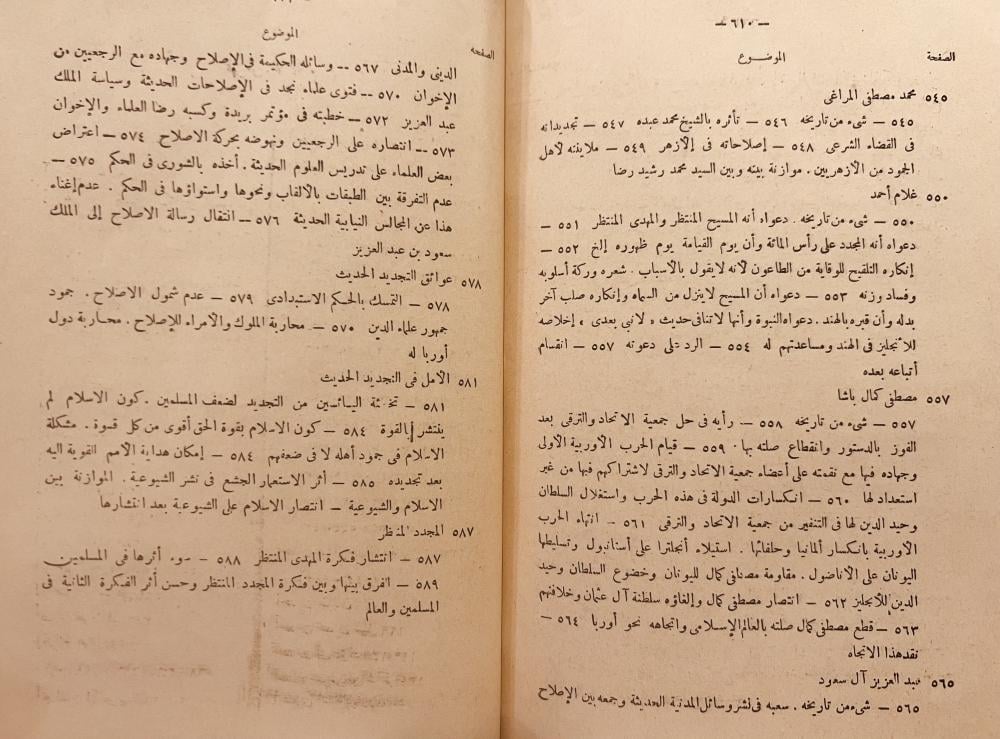 — ٦١٠ —
الصفحة الموضـــوع
٥٤٥ محمد مصطفى المراغى
٥٤٥ — شىء من تاريخه ٥٤٦ — تأثره بالشيخ محمد عبده ٥٤٧ — تجديداته
فى القضاء الشرعى ٥٤٨ — إصلاحاته فى الازهر ٥٤٩ — ملاينته لاهل
الجمود من الأزهريين. موازنة بينه وبين السيد محمد رشيد رضا
٥٥٠ غلام أحمد
٥٥٠ — شىء من تاريخه. دعواه أنه المسيح المنتظر والمهدى المنتظر ٥٥١ —
دعواه أنه المجدد على رأس المائة وأن يوم القيامة يوم ظهوره إلخ ٥٥٢ —
إنكاره التلقيح للوقاية من الطاعون لانه لايقول بالاسباب. شعره وركة أسلوبه
وفساد وزنه ٥٥٣ — دعواه أن المسيح لاينزل من السماء وإنكاره صلب آخر
بدله وأن قبره بالهند. دعواه النبوة وأنها لاتنافى حديث « لانبى بعدى » إخلاصه
للانجليز فى الهند ومساعدتهم له ٥٥٤ — الرد على دعوته ٥٥٧ — انقسام
أتباعه بعده
٥٥٧ مصطفى كمال باشا
٥٥٧ — شىء من تاريخه ٥٥٨ — رأيه فى حل جمعية الاتحاد والترقى بعد
الفوز بالدستور وانقطاع صلته بها. ٥٥٩ — قيام الحرب الأوربية الأولى
وجهاده فيها مع نقمته على أعضاء جمعية الاتحاد والترقى لاشتراكهم فيها من غير
استعداد لها ٥٦٠ — انكسارات الدولة فى هذه الحرب واستغلال السلطان
وحيد الدين لها فى التنفير من جمعية الاتحاد والترقى ٥٦١ — انتهاء الحرب
الأوربية بانكسار ألمانيا وحلفائها. استيلاء أنجلترا على أستانبول وتسليطها
اليونان على الاناضول. مقاومة مصطفى كمال لليونان وخضوع السلطان وحيد
الدين للأنجليز ٥٦٢ — انتصار مصطفى كمال وإلغاؤه سلطنة آل عثمان وخلافتهم
٥٦٣ — قطع مصطفى كمال صلته بالعالم الإسلامى واتجاهه نحو أوربا ٥٦٤ —
نقد هذا الاتجاه
٥٦٥ عبد العزيز آل سعود
٥٦٥ — شىء من تاريخه. سعيه فى نشر وسائل المدنية الحديثة وجمعه بين الإصلاح
الصفحة الموضوع
الدينى والمدنى ٥٦٧ — وسائله الحكيمة فى الإصلاح وجهاده مع الرجعيين من
الإخوان ٥٧٠ — فتوى علماء نجد فى الإصلاحات الحديثة وسياسة الملك
عبد العزيز ٥٧٢ — خطبته فى مؤتمر بريدة وكسبه رضا العلماء والإخوان
٥٧٣ — انتصاره على الرجعيين ونهوضه بحركة الاصلاح ٥٧٤ — اعتراض
بعض العلماء على تدريس العلوم الحديثة. أخذه بالشورى فى الحكم ٥٧٥ —
عدم التفرقة بين الطبقات بالألقاب ونحوها واستواؤها فى الحكم. عدم إغناء
هذا عن المجالس النيابية الحديثة ٥٧٦ — انتقال رسالة الاصلاح إلى الملك
سعود بن عبد العزيز
٥٧٨ عوائق التجديد الحديث
٥٧٨ — التمسك بالحكم الاستبدادى ٥٧٩ — عدم شمول الاصلاح. جمود
جمهور علماء الدين ٥٧٠ — محاربة الملوك والأمراء للإصلاح. محاربة دول
أوربا له
٥٨١ الأمل فى التجديد الحديث
٥٨١ — تخطئة اليائسين من التجديد لضعف المسلمين. كون الاسلام لم
ينتشر بالقوة ٥٨٤ — كون الاسلام بقوة الحق أقوى من كل قسوة. مشكلة
الاسلام فى جمود أهله لا فى ضعفهم ٥٨٤ — إمكان هداية الأمم القوية اليه
بعد تجديده ٥٨٥ — أثر الاستعمار الجشع فى نشر الشيوعية. الموازنة بين
الاسلام والشيوعية — انتصار الاسلام على الشيوعية بعد انتشارها
٥٨٧ المجدد المنتظر
٥٨٧ — انتشار فكرة المهدى المنتظر ٥٨٨ — سوء أثرها فى المسلمين
٥٨٩ — الفرق بينها وبين فكرة المجدد المنتظر وحسن أثر الفكرة الثانية فى
المسلمين والعالم